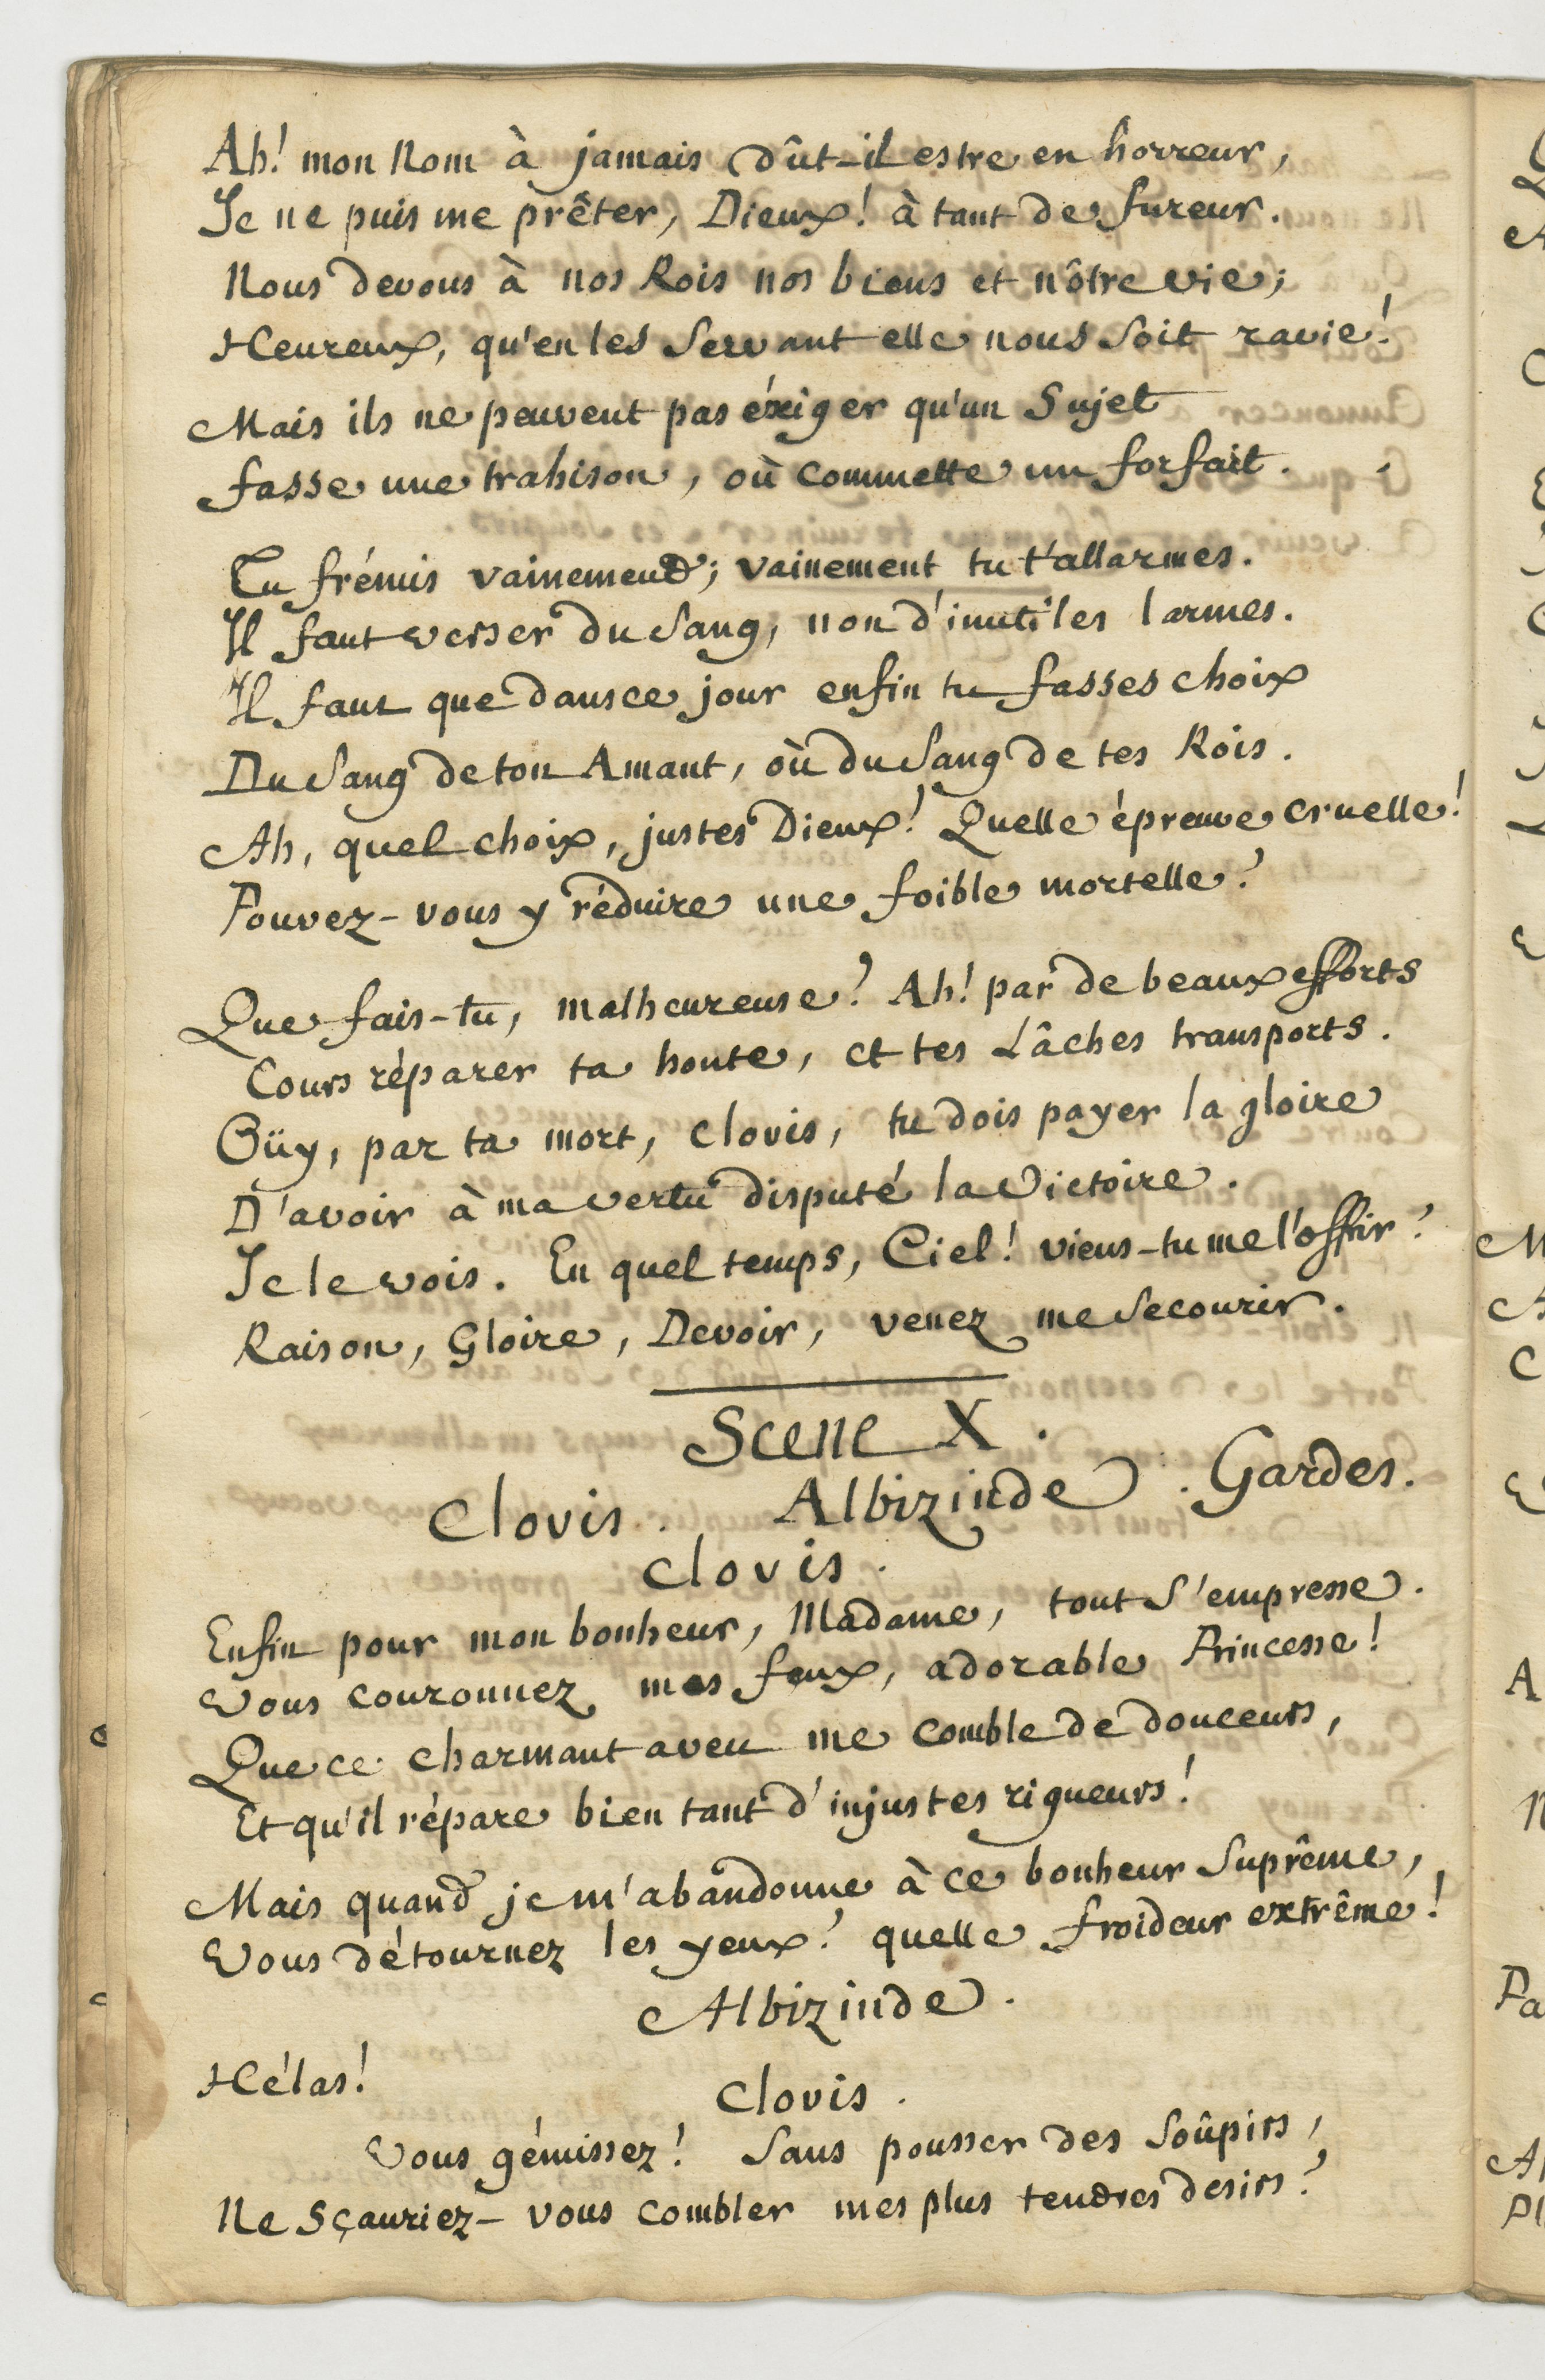 Ah! mon Nom à jamais dût-il estre en horreur,
Je ne puis me prêter, Dieux! à tant de fureur.
Nous devons à nos Rois nos biens et nôtre vie;
Heureux, qu'en les servant elle nous soit ravie!
Mais ils ne peuvent pas éxiger qu'un Sujet
fasse une trahison, où commette un forfait.
Tu frémis vainement; vainement tu t'allarmes.
Il faut verser du sang, non d'inutiles larmes.
Il faut que dans ce jour enfin tu fasses choix
Du sang de ton Amant, où du sang de tes Rois.
Ah, quel choix, justes Dieux! Quelle épreuve cruelle!
Pouvez-vous y réduire une foible mortelle?
Que fais-tu, malheureuse? Ah! par de beaux efforts
Cours réparer ta honte, et tes lâches transports.
Oüy, par ta mort, Clovis, tu dois payer la gloire
D'avoir à ma vertu disputé la victoire.
Je le vois. En quel temps, Ciel! viens-tu me l'offrir?
Raison, Gloire, Devoir, venez me secourir.
Scene X.
Clovis. Albizinde. Gardes.
Clovis.
Enfin pour mon bonheur, Madame, tout s'empresse.
Vous couronnez mes feux, adorable Princesse!
Que ce charmant aveu me comble de douceurs,
Et qu'il répare bien tant d'injustes rigueurs!
Mais quand je m'abandonne à ce bonheur suprême,
Vous détournez les yeux? quelle froideur extrême!
Albizinde.
Hélas!
Clovis.
Vous gémissez! Sans pousser des soûpirs,
Ne sçauriez-vous combler mes plus tendres desirs?